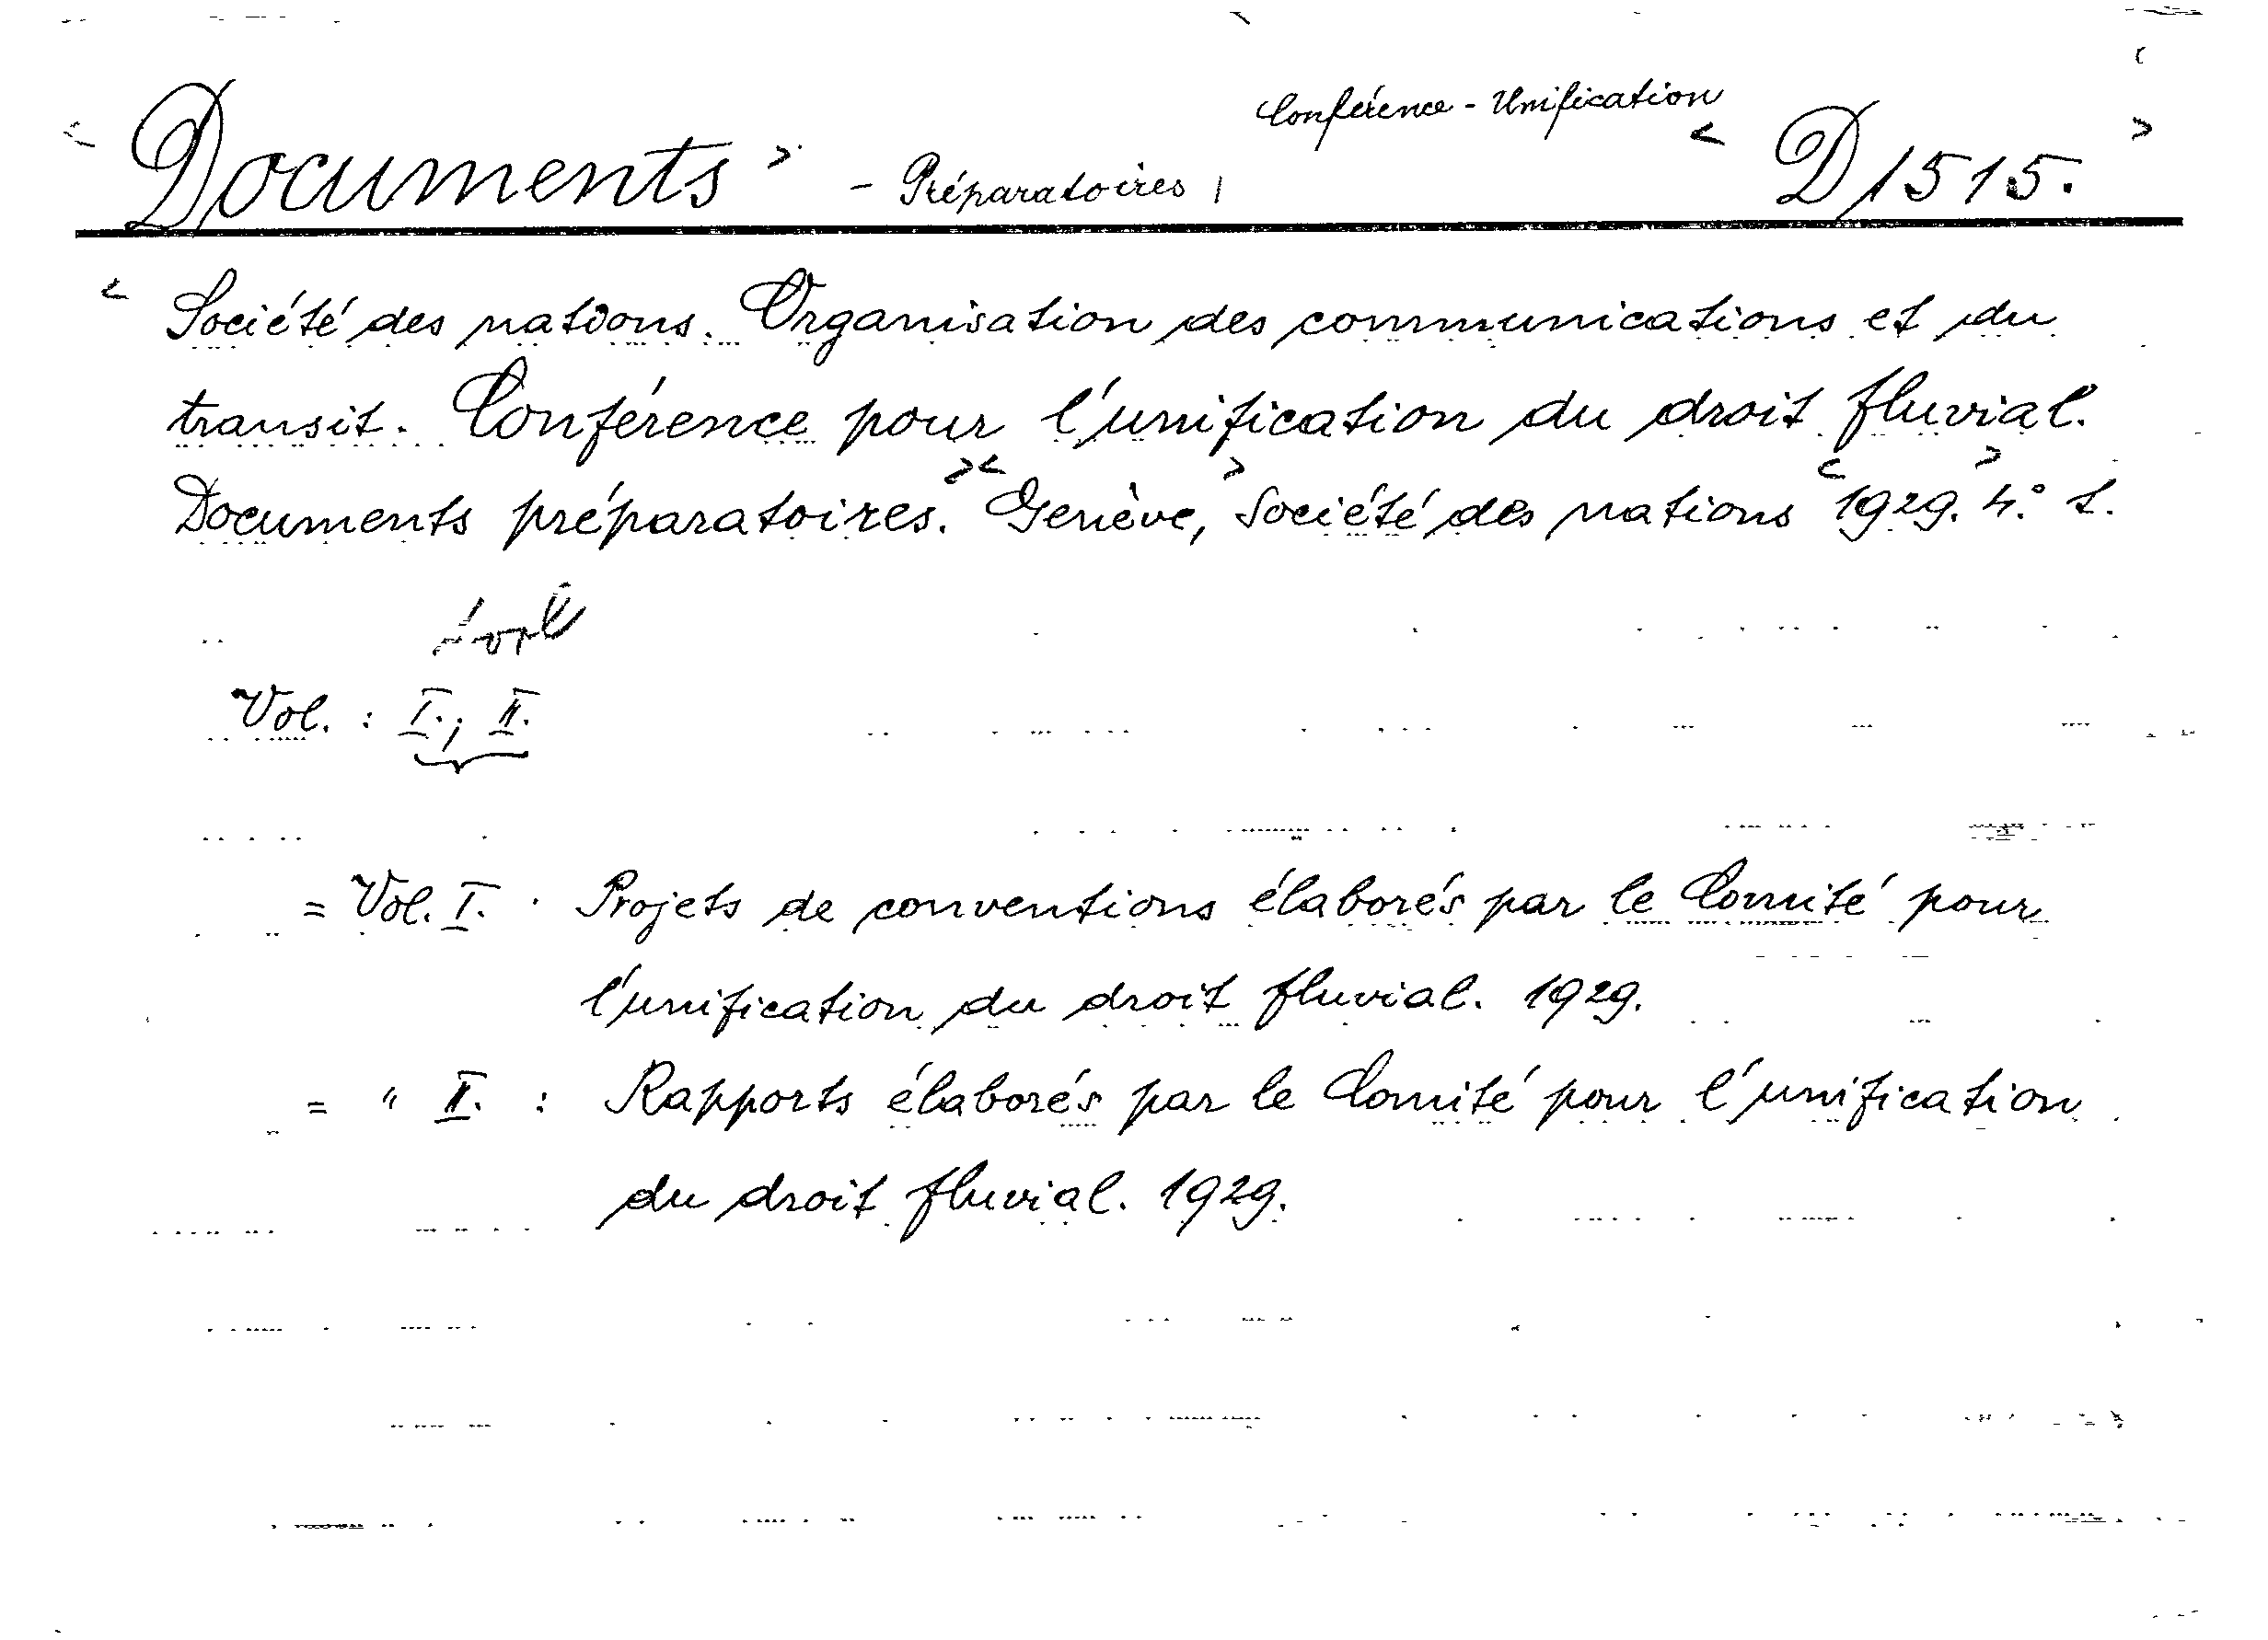 Conférence - Unification
< Documents > - Préparatoires | < D 1515. >
< Société des nations. Organisation des communications et du
transit. Conférence pour l'unification du droit fluvial.
Documents préparatoires. > < Genève, > Société des nations < 1929. > 4.°
Vol. : I.; II.
= Vol. I. · Projets de conventions élaborés par le Comité pour
l'unification du droit fluvial. 1929.
= " II. : Rapports élaborés par le Comité pour l'unification
du droit fluvial. 1929.